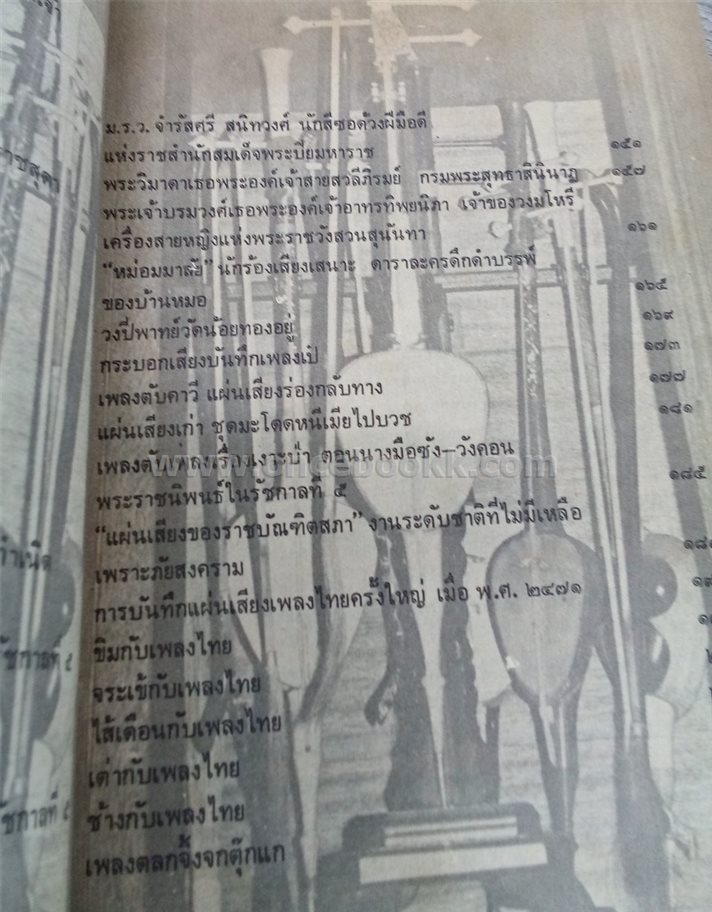 ม.ร.ว. จำรัสศรี สนิทวงศ์ นักสีซอด้วงฝีมือดี
แห่งราชสำนักสมเด็จพระปิยมหาราช ๑๕๑
พระวิมาดาเธอพระองค์เจ้าสายสวลีภิรมย์ กรมพระสุทธาสินีนาฎ ๑๕๗
พระเจ้าบรมวงศ์เธอพระองค์เจ้าอาทรทิพยนิภา เจ้าของวงมโหรี
เครื่องสายหญิงแห่งพระราชวังสวนสุนันทา ๑๖๑
“หม่อมมาลัย” นักร้องเสียงเสนาะ ดาราละครดึกดำบรรพ์
ของบ้านหมอ ๑๖๕
วงปี่พาทย์วัดน้อยทองอยู่ ๑๖๙
กระบอกเสียงบันทึกเพลงเป๋ ๑๗๓
เพลงตับคาวี แผ่นเสียงร่องกลับทาง ๑๗๗
แผ่นเสียงเก่า ชุดมะโดดหนีเมียไปบวช ๑๘๑
เพลงตับ เพลงเรื่องเงาะป่า ตอนนางมือซัง–วังคอน
พระราชนิพนธ์ในรัชกาลที่ ๕ ๑๘๕
“แผ่นเสียงของราชบัณฑิตสภา” งานระดับชาติที่ไม่มีเหลือ
เพราะภัยสงคราม
การบันทึกแผ่นเสียงเพลงไทยครั้งใหญ่ เมื่อ พ.ศ. ๒๔๗๑
ขิมกับเพลงไทย
จระเข้กับเพลงไทย
ไส้เดือนกับเพลงไทย
เต่ากับเพลงไทย
ช้างกับเพลงไทย
เพลงตลกจิ้งจกตุ๊กแก